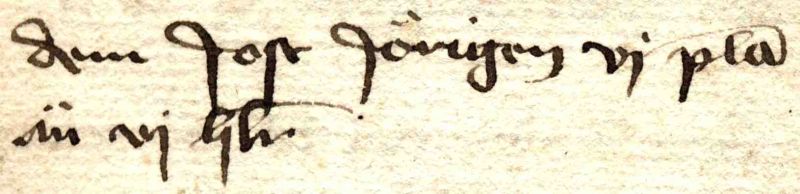 dem Jost Jörigen vj pla
än vj hlr